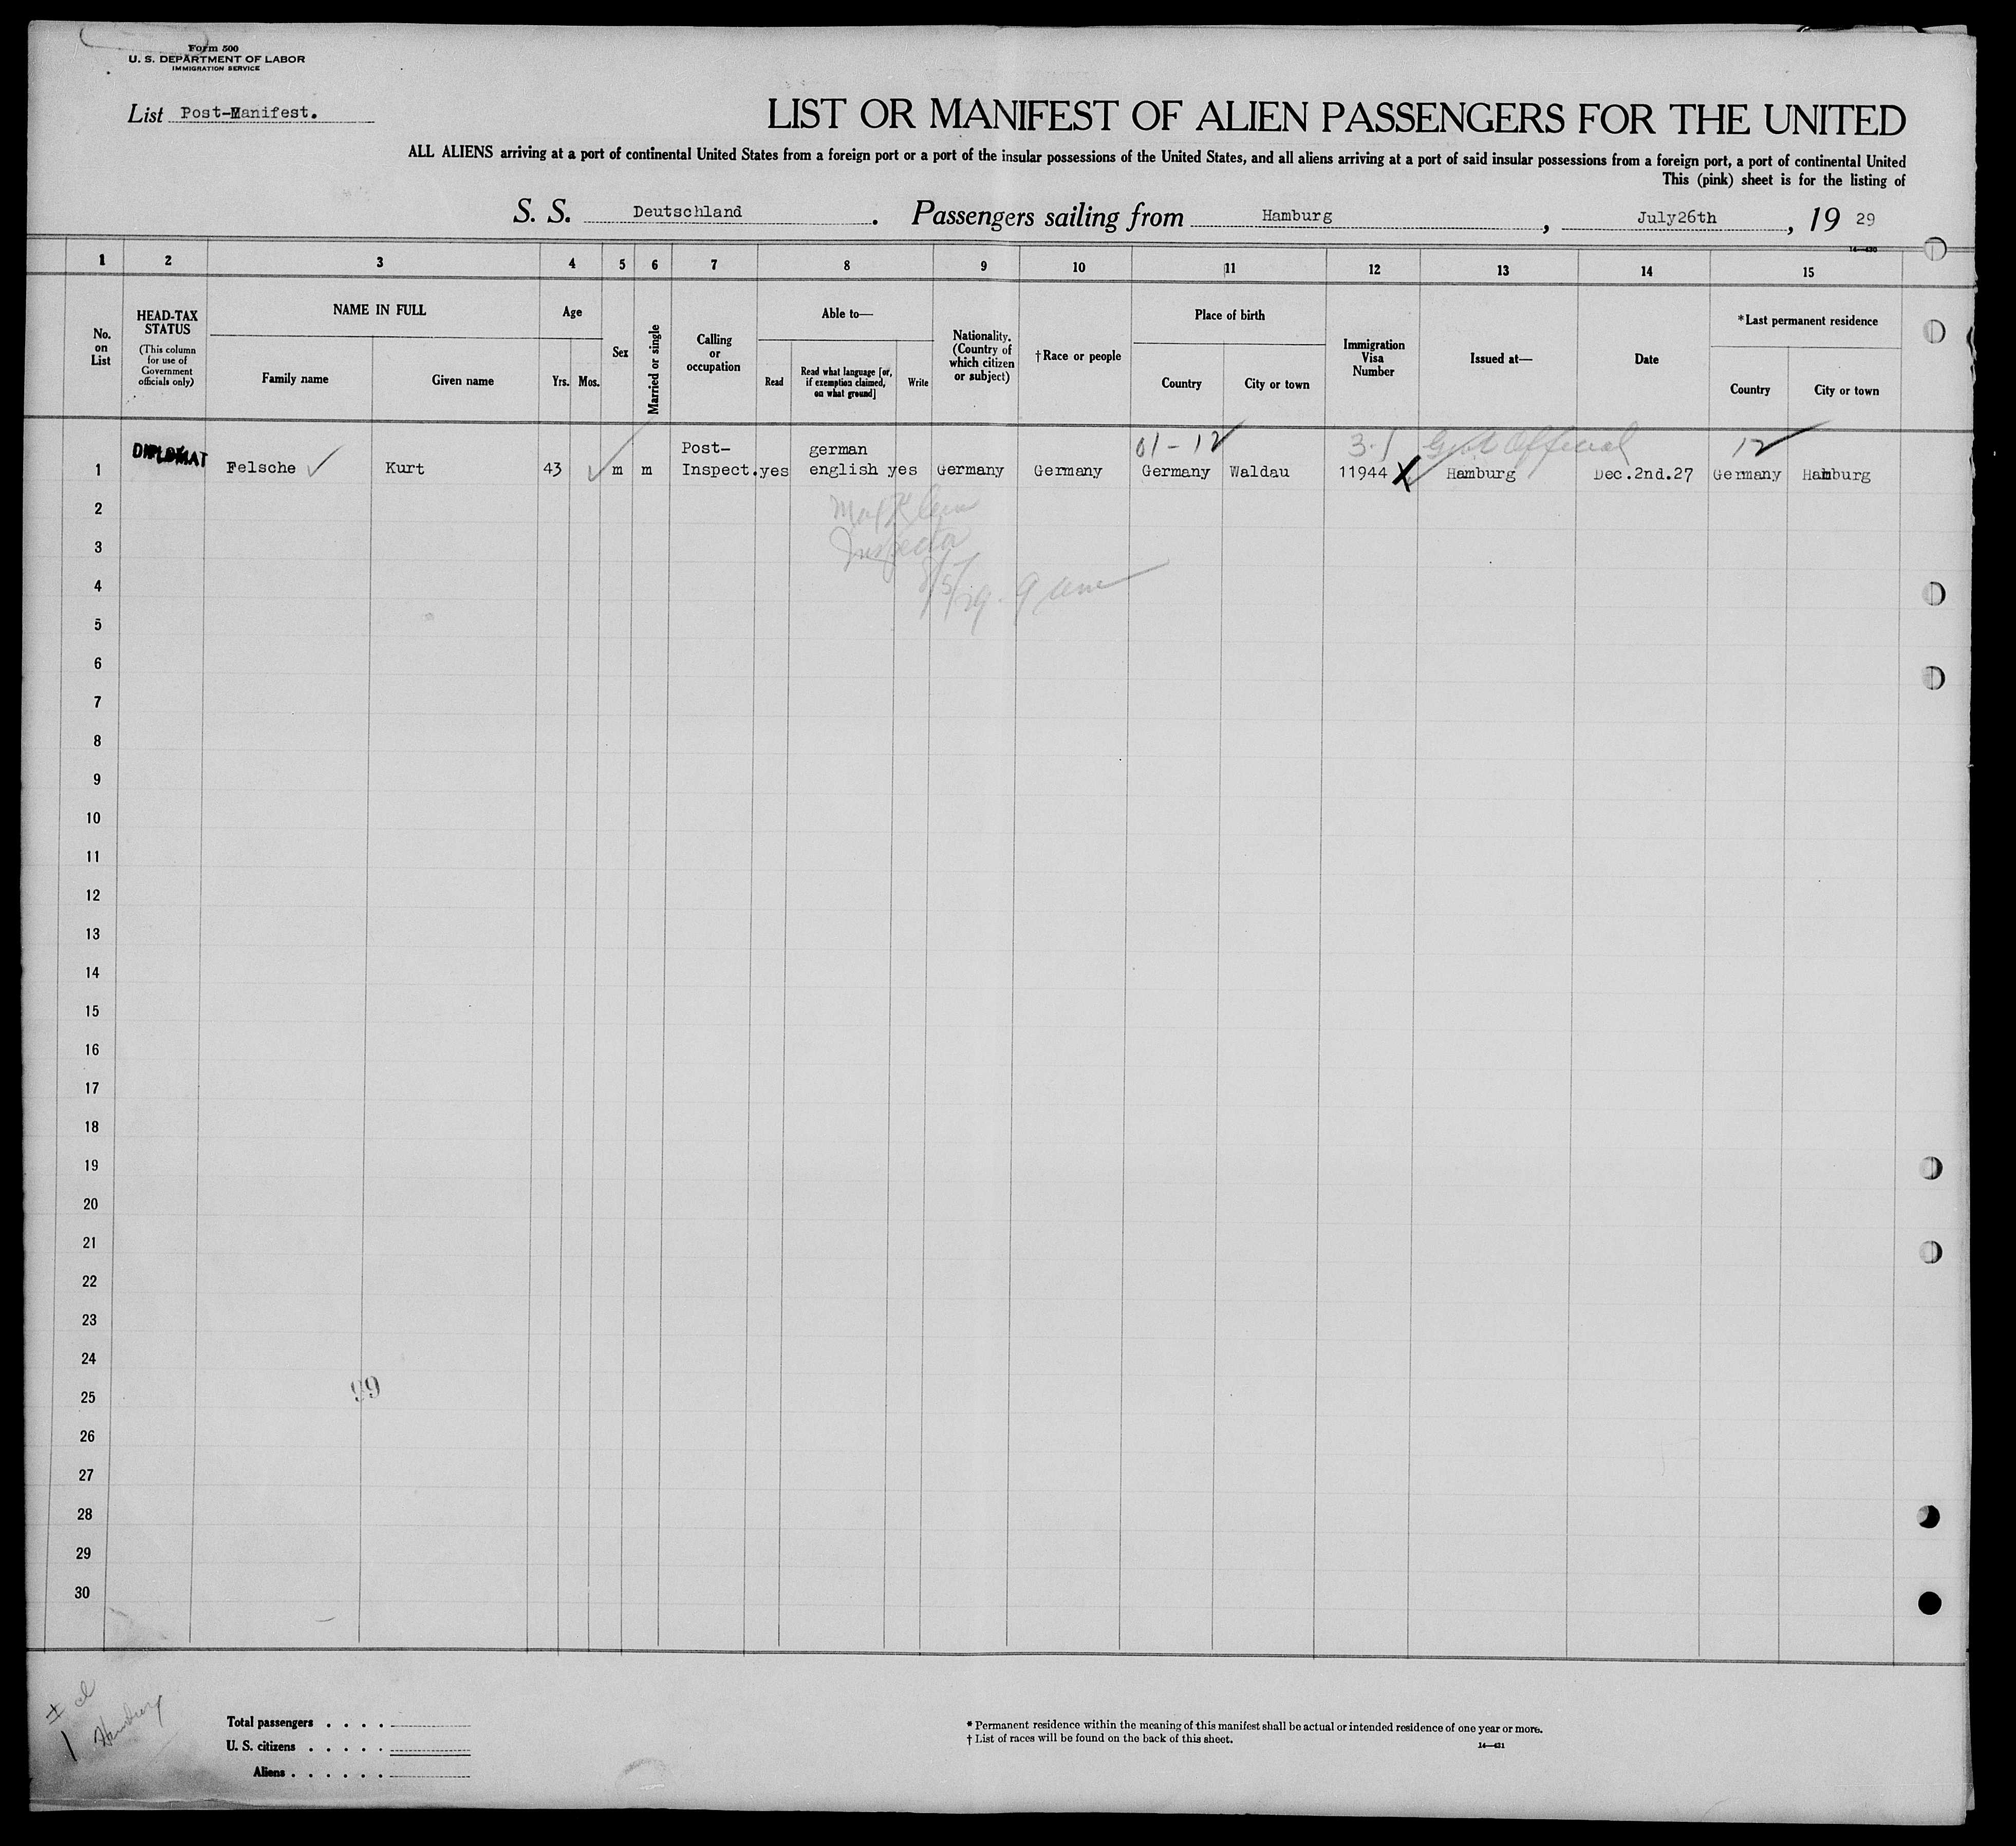 Form 500
U. S. DEPARTMENT OF LABOR
IMMIGRATION SERVICE
List Post-Manifest.
LIST OR MANIFEST OF ALIEN PASSENGERS FOR THE UNITED
ALL ALIENS arriving at a port of continental United States from a foreign port or a port of the insular possessions of the United States, and all aliens arriving at a port of said insular possessions from a foreign port, a port of continental United
This (pink) sheet is for the listing of
S. S. Deutschland . Passengers sailing from Hamburg , July26th , 19 29
14—430
1 2 3 4 5 6 7 8 9 10 11 12 13 14 15
No. on List
HEAD-TAX STATUS
(This column for use of Government officials only)
NAME IN FULL
Family name Given name
Age
Yrs. Mos.
Sex
Married or single
Calling or occupation
Able to—
Read
Read what language [or, if exemption claimed, on what ground]
Write
Nationality. (Country of which citizen or subject)
†Race or people
Place of birth
Country City or town
Immigration Visa Number
Issued at—
Date
*Last permanent residence
Country City or town
01-12 3-1 Govt Official 12
Post- german
1 DIPLOMAT Felsche Kurt 43 m m Inspect. yes english yes Germany Germany Germany Waldau 11944 X Hamburg Dec.2nd.27 Germany Hamburg
2
Inspector
3
8/5/29. 9 am
4
5
6
7
8
9
10
11
12
13
14
15
16
17
18
19
20
21
22
23
24
99
25
26
27
28
29
30
Hamburg
Total passengers . . . .
U. S. citizens . . . . .
Aliens . . . . . .
* Permanent residence within the meaning of this manifest shall be actual or intended residence of one year or more.
† List of races will be found on the back of this sheet.
14—431